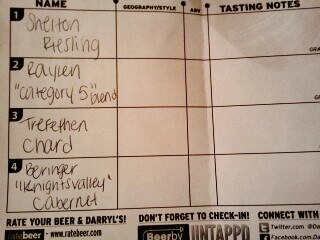 NAME GEOGRAPHY/STYLE ABV TASTING NOTES
1 Shelton
Riesling
2 Raylen
"category 5" blend
3 Trefethen
Chard
4 Beringer
"Knights valley"
Cabernet
RATE YOUR BEER & DARRYL'S! DON'T FORGET TO CHECK-IN! CONNECT WITH
ratebeer - www.ratebeer.com Beerby UNTAPPD Twitter.com @Da
Facebook.com.Da